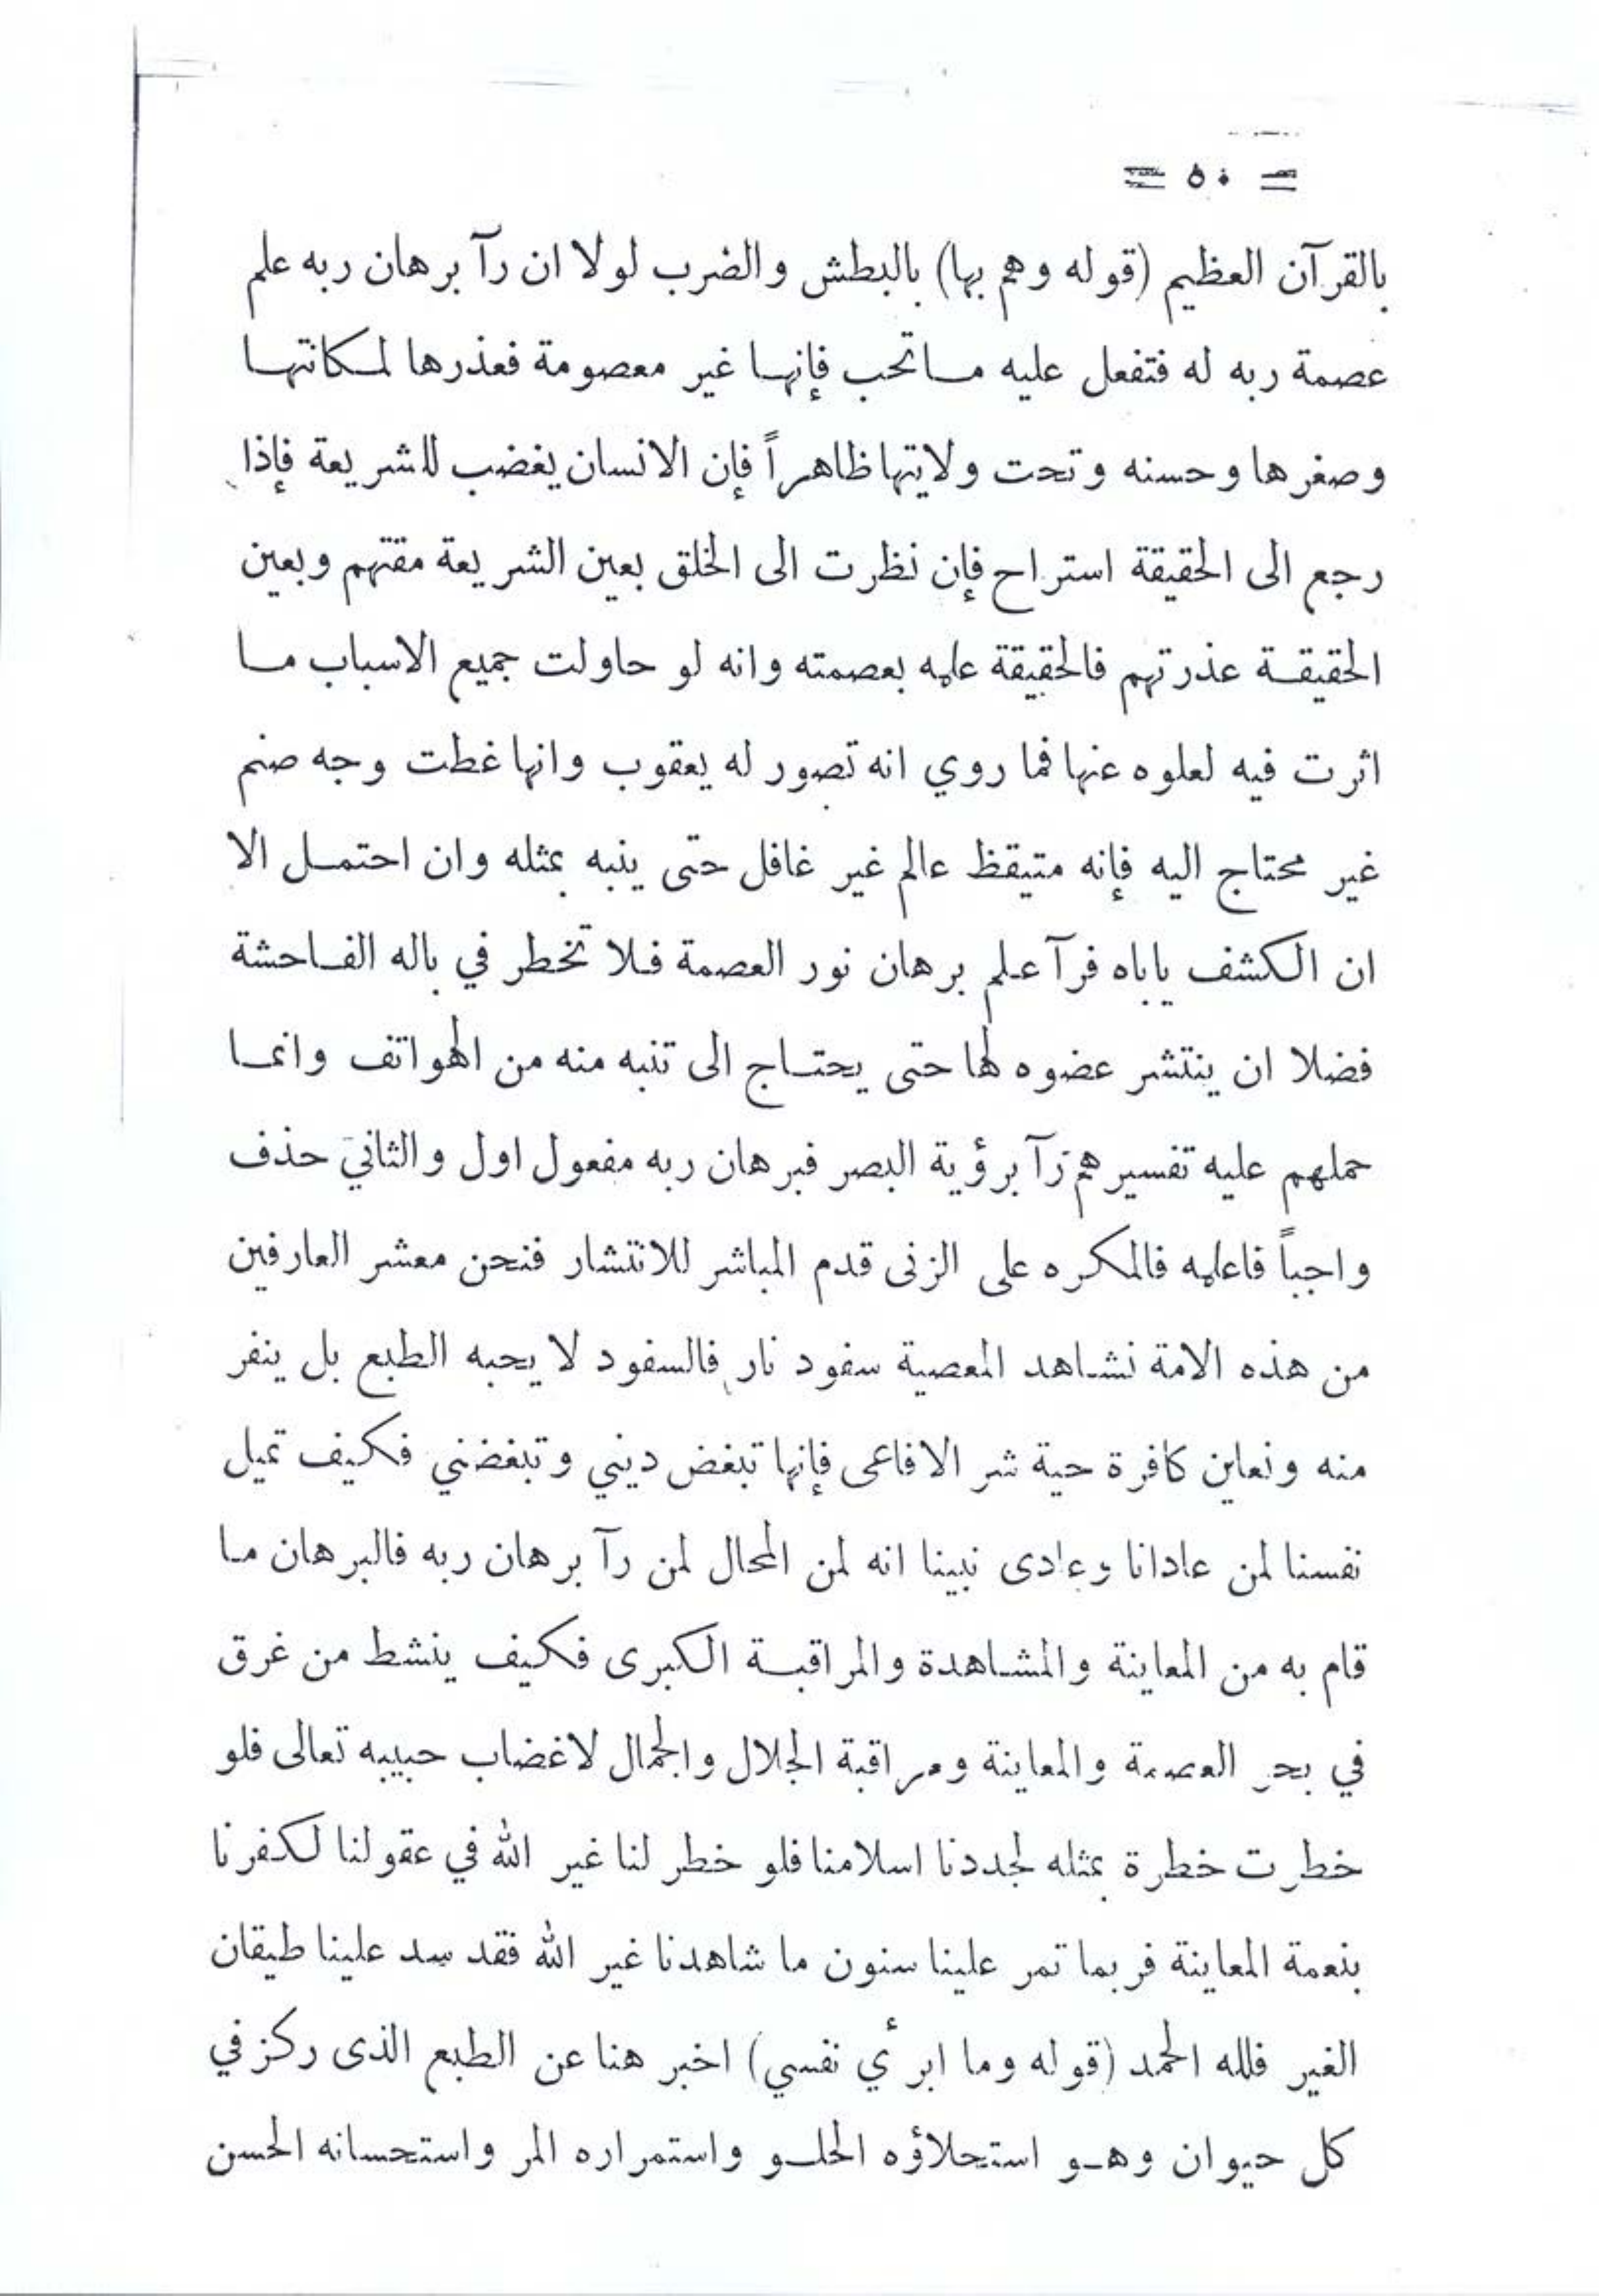 = ٥٠ =
بالقرآن العظيم (قوله وهم بها) بالبطش والضرب لولا ان رآ برهان ربه علم
عصمة ربه له فتفعل عليه ما تحب فإنها غير معصومة فعذرها لمكانتها
وصغرها وحسنه وتحت ولايتها ظاهراً فإن الانسان يغضب للشريعة فإذا
رجع الى الحقيقة استراح فإن نظرت الى الخلق بعين الشريعة مقتهم وبعين
الحقيقة عذرتهم فالحقيقة علمه بعصمته وانه لو حاولت جميع الاسباب ما
اثرت فيه لعلوه عنها فما روي انه تصور له يعقوب وانها غطت وجه صنم
غير محتاج اليه فإنه متيقظ عالم غير غافل حتى ينبه بمثله وان احتمل الا
ان الكشف ياباه فرآ علم برهان نور العصمة فلا تخطر في باله الفاحشة
فضلا ان ينتشر عضوه لها حتى يحتاج الى تنبه منه من الهواتف وانما
حملهم عليه تفسيرهم رآ برؤية البصر فبرهان ربه مفعول اول والثاني حذف
واجباً فاعلمه فالمكره على الزنى قدم المباشر للانتشار فنحن معشر العارفين
من هذه الامة نشاهد المعصية سفود نار فالسفود لا يحبه الطبع بل ينفر
منه ونعاين كافرة حية شر الافاعى فإنها تبغض ديني وتبغضني فكيف تميل
نفسنا لمن عادانا وعادى نبينا انه لمن المحال لمن رآ برهان ربه فالبرهان ما
قام به من المعاينة والمشاهدة والمراقبة الكبرى فكيف ينشط من غرق
في بحر العصمة والمعاينة ومراقبة الجلال والجمال لاغضاب حبيبه تعالى فلو
خطرت خطرة بمثله لجددنا اسلامنا فلو خطر لنا غير الله في عقولنا لكفرنا
بنعمة المعاينة فربما تمر علينا سنون ما شاهدنا غير الله فقد سد علينا طيقان
الغير فلله الحمد (قوله وما ابرئ نفسي) اخبر هنا عن الطبع الذى ركز في
كل حيوان وهو استحلاؤه الحلو واستمراره المر واستحسانه الحسن